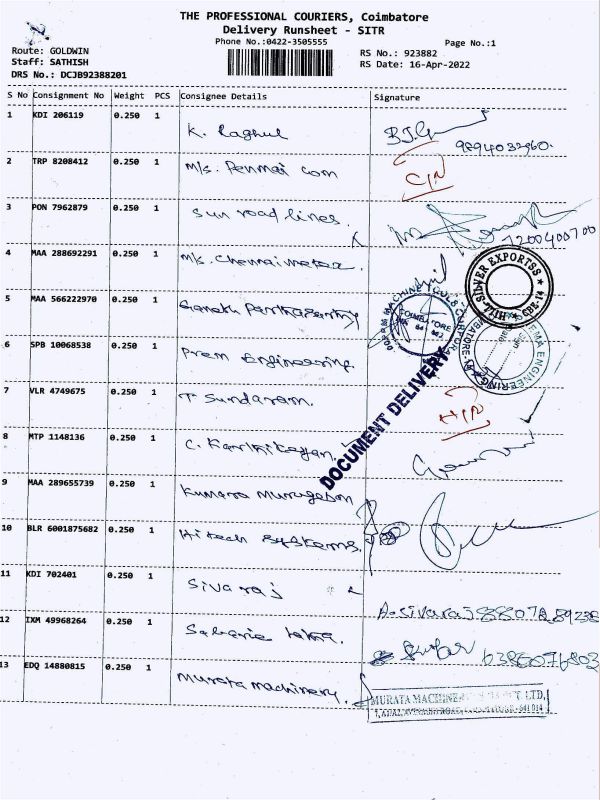 THE PROFESSIONAL COURIERS, Coimbatore
Delivery Runsheet - SITR
Phone No.:0422-3505555
Page No.:1
Route: GOLDWIN
Staff: SATHISH
DRS No.: DCJB92388201
RS No.: 923882
RS Date: 16-Apr-2022
S No Consignment No Weight PCS Consignee Details Signature
1 KDI 206119 0.250 1 K. Raghul 9894032960
2 TRP 8208412 0.250 1 M/s. Penmai com
3 PON 7962879 0.250 1 Sun road lines. 7200400700
4 MAA 288692291 0.250 1 M/s. Chennai metex
5 MAA 566222970 0.250 1 Ganesh Parthasarathy
6 SPB 10068538 0.250 1 Prem Engineering
7 VLR 4749675 0.250 1 T Sundaram.
8 MTP 1148136 0.250 1 C. Karthikeyan.
9 MAA 289655739 0.250 1 Kumara Murugeson
10 BLR 6001875682 0.250 1 Hitech Systems.
11 KDI 702401 0.250 1 Sivaraj A. Sivaraj
12 IXM 49968264 0.250 1
13 EDQ 14880815 0.250 1 Murata machinery.
SILVER EXPORTSS
COIMBATORE
DOCUMENT DELIVERY
MURATA MACHINERY